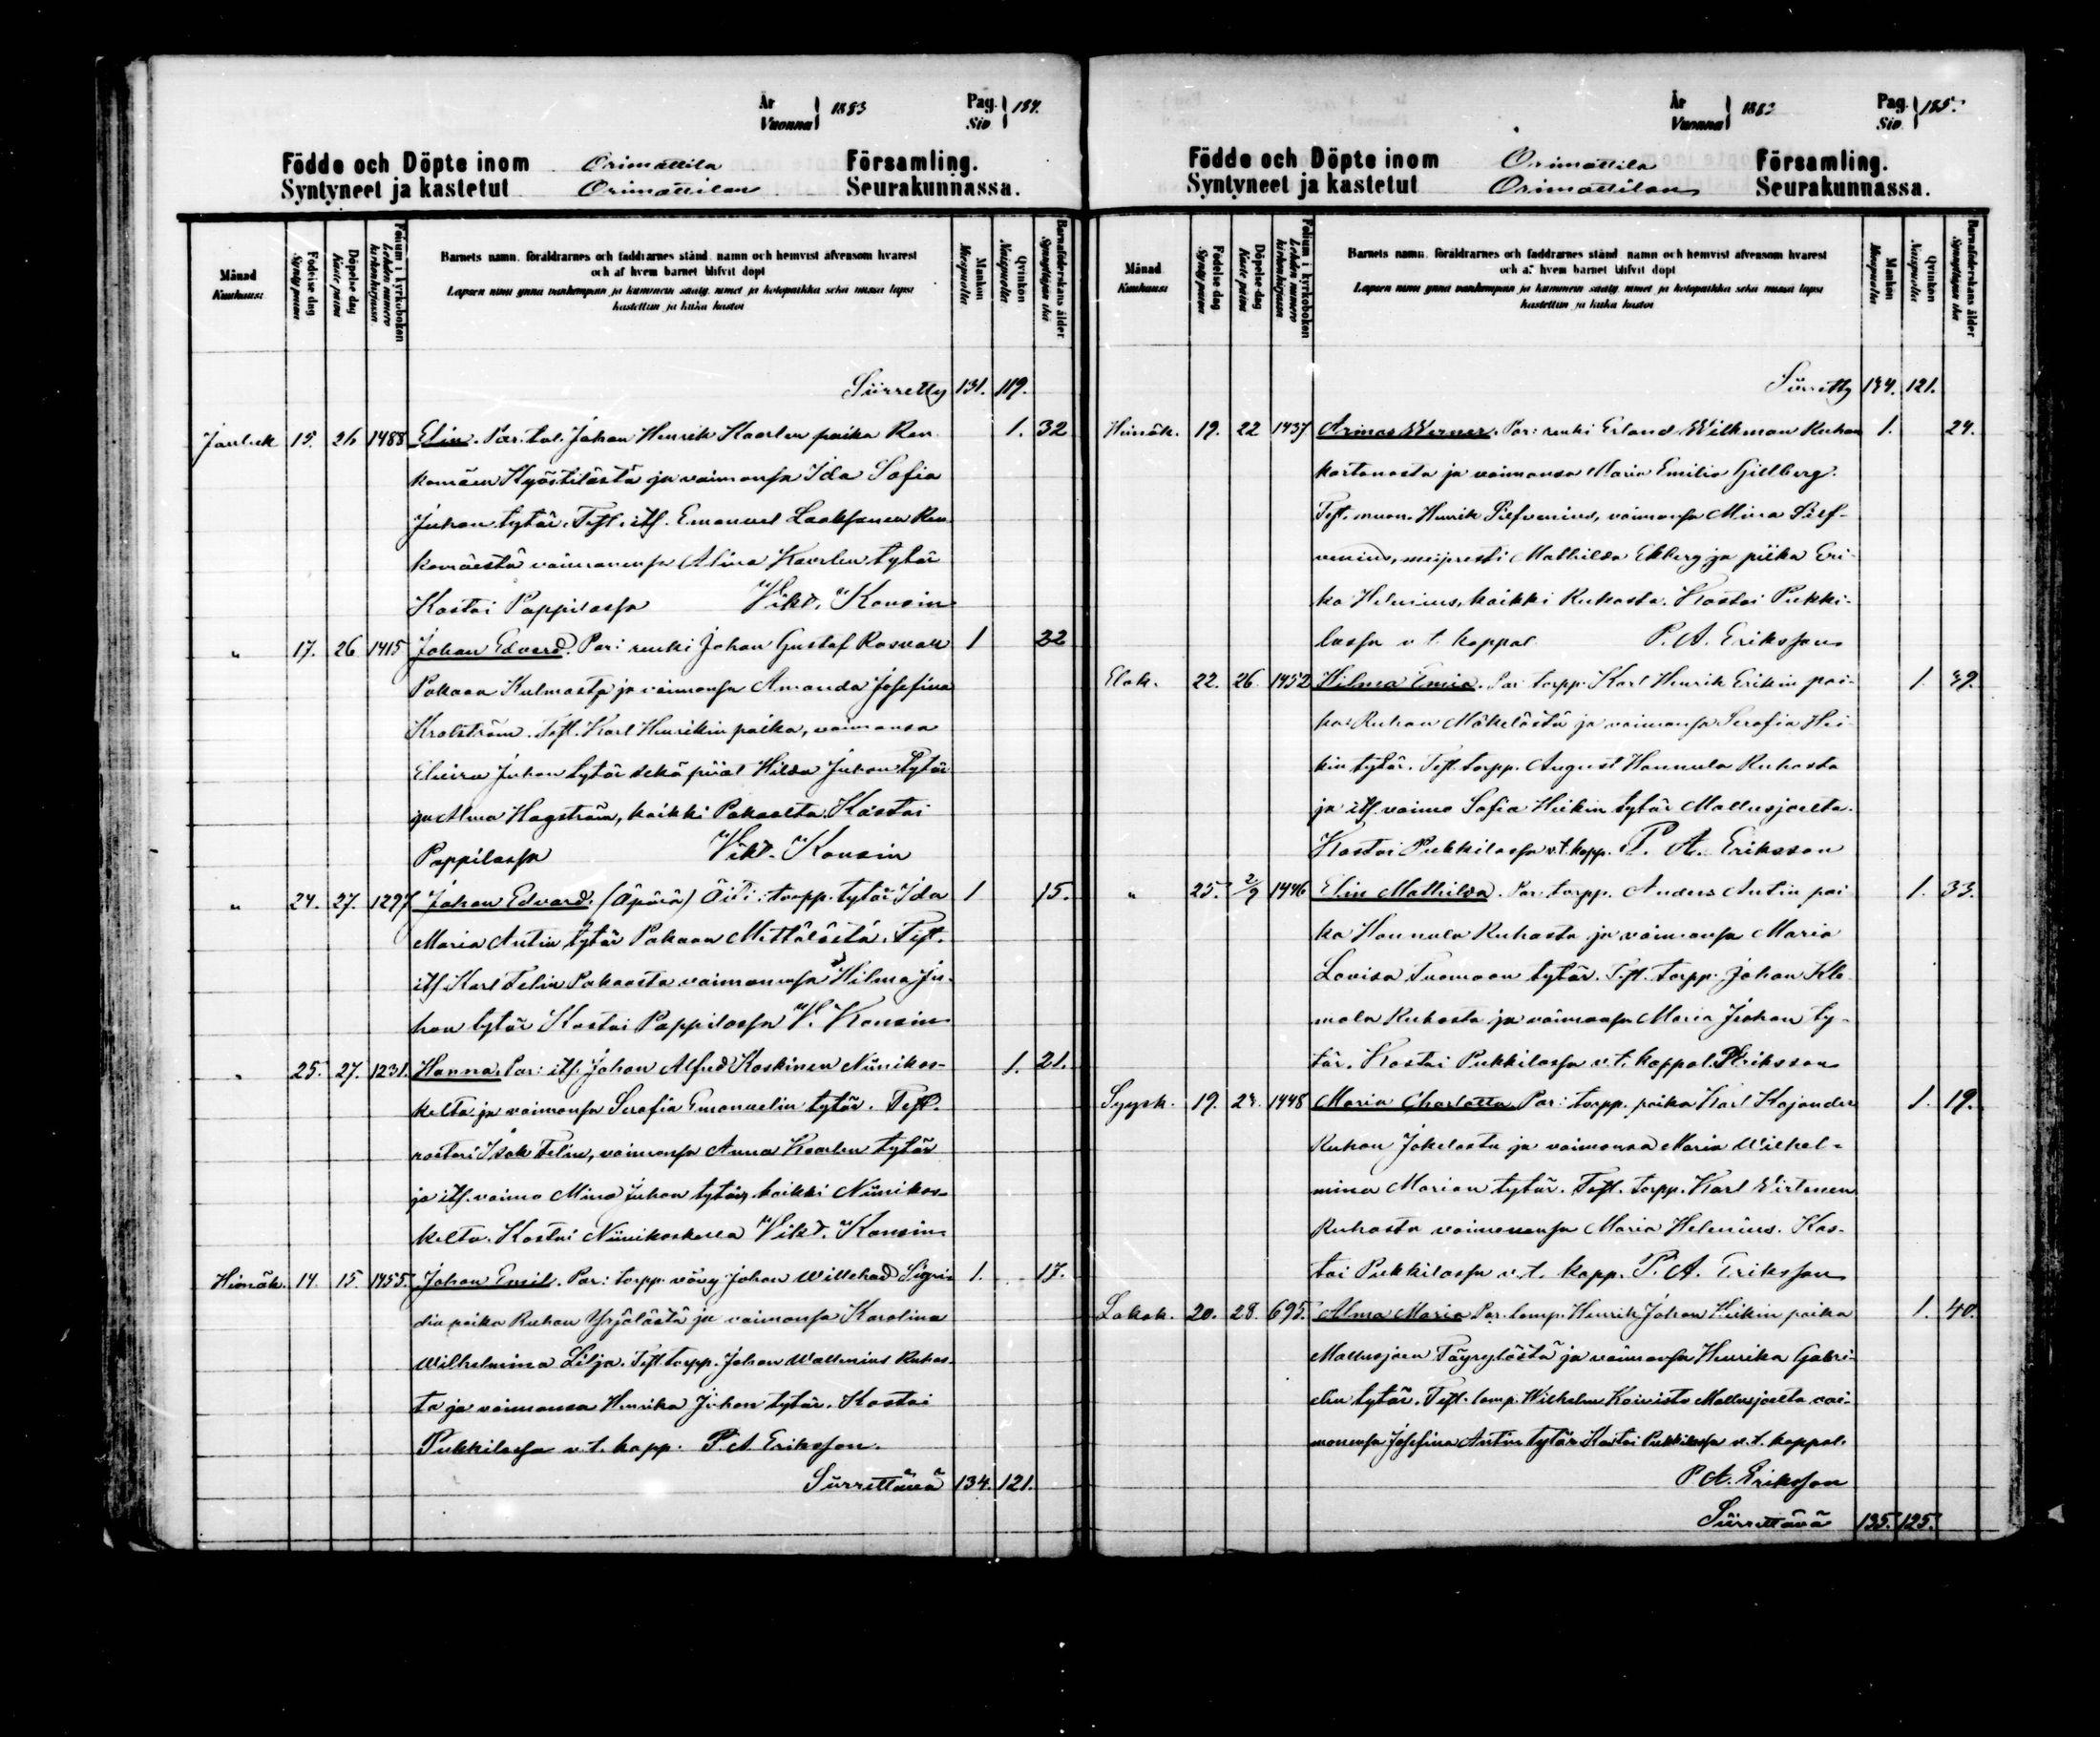 År
Vuonna } 1883
Pag.
Siv. } 184.
Födde och Döpte inom Orimattila Församling.
Syntyneet ja kastetut Orimattilan Seurakunnassa.
Månad
Kuukausi
Födelse dag
Syntypäivä
Döpelse dag
Kaste päivä
Folium i kyrkoboken
Lehden numero kirkonkirjassa
Barnets namn, föräldrarnes och faddrarnes stånd, namn och hemvist äfvensom hvarest
och af hvem barnet blifvit döpt
Lapsen nimi ynnä vanhempain ja kummein sääty, nimet ja kotopaikka sekä missä lapsi
kastettiin ja kuka kastoi
Mankön
Miespuolta
Qvinkön
Naispuolta
Barnaföderskans ålder
Synnyttäjän ikä
Siirretty 131. 119.
15. 26 1488 Elin. Par. tal. Johan Henrik Kaarlen poika Ken- 1. 32
komäen Kyöstilästä ja vaimonsa Ida Sofia
Juhan tytär. Test. its. Emanuel Laaksonen Ken-
komäestä vaimonensa Alina Kaarlen tytär
Kastoi Pappilassa Vikt. Konsin
" 17. 26 1415 Johan Edvard. Par: renki Johan Gustaf Rosvall 1 32
Pakaan Kulmasta ja vaimonsa Amanda Josefina
Test. Karl Henrikin poika, vaimonsa
Juhan tytär sekä piiat Hilda Juhan tytär
ja Alma Hagström, kaikki Pakaalta. Kastoi
Pappilassa Vikt. Konsin
" 24. 27. 1297 Johan Edvard. (Äpärä) Äiti: torpp. tytär Ida 1 15.
Maria Antin tytär Pakaan Mettälästä. Test.
its. Karl Felin Pakaasta vaimonensa Hilma Ju-
han tytär Kastoi Pappilassa V. Konsin
" 25. 27. 1231. Hanna. Par: its. Johan Alfred Koskinen Niinikos- 1. 21.
kelta ja vaimonsa Serafia Emanuelin tytär. Test.
Isak Felin, vaimonsa Anna Kaarlen tytär
ja its. vaimo Mina Juhan tytär, kaikki Niinikos-
kelta. Kastoi Niinikoskella Vikt. Konsin
Heinäk. 14. 15. 1455. Johan Emil. Par: torpp. vävy Johan Willehad Sigri- 1. 17.
din poika Ruhan Yrjölästä ja vaimonsa Karolina
Wilhelmina Lilja. Test. torpp. Johan Wallenius Ruhas-
ta ja vaimonsa Henrika Juhan tytär. Kastoi
Pukkilassa v.t. kapp. P. A. Eriksson.
Siirrettävä 134. 121.
År
Vuonna } 1883
Pag.
Siv. } 185.
Födde och Döpte inom Orimattila Församling.
Syntyneet ja kastetut Orimattilan Seurakunnassa.
Månad
Kuukausi
Födelse dag
Syntypäivä
Döpelse dag
Kaste päivä
Folium i kyrkoboken
Lehden numero kirkonkirjassa
Barnets namn, föräldrarnes och faddrarnes stånd, namn och hemvist äfvensom hvarest
och af hvem barnet blifvit döpt
Lapsen nimi ynnä vanhempain ja kummein sääty, nimet ja kotopaikka sekä missä lapsi
kastettiin ja kuka kastoi
Mankön
Miespuolta
Qvinkön
Naispuolta
Barnaföderskans ålder
Synnyttäjän ikä
Siirretty 134. 121.
Heinäk. 19. 22 1437 Armas Werner. Par: renki Erland Wilkman Ruhan 1. 24.
kartanosta ja vaimonsa Maria Emilia Gillberg.
Test. muon. Henrik vaimonsa Mina
Mathilda Ekberg ja piika Eri-
ka Helenius, kaikki Ruhasta. Kastoi Pukki-
lassa v.t. kappal. P. A. Eriksson
Elok. 22. 26. 1452 Hilma Par. torpp. Karl Henrik Erikin poi- 1. 39.
ka Ruhan Mäkelästä ja vaimonsa Serafia Hei-
kin tytär. Test. torpp. August Hannula Ruhasta
ja its. vaimo Sofia Heikin tytär Mallusjoelta.
Kastoi Pukkilassa v.t. kapp. P. A. Eriksson
" 25. 2/9 1446 Elin Mathilda. Par. torpp. Anders Antin poi- 1. 33.
ka Hannula Ruhasta ja vaimonsa Maria
Lovisa Tuomaan tytär. Test. torpp. Johan Kle-
mola Ruhasta ja vaimonsa Maria Juhan ty-
tär. Kastoi Pukkilassa v.t. kappal. P. Eriksson
Syysk. 19. 24. 1448 Maria Charlotta Par: torpp. poika Karl Kajander 1. 19.
Ruhan Jokelasta ja vaimonsa Maria Wilhel-
mina Marian tytär. Test. torpp. Karl Wirtanen
Ruhasta vaimonensa Maria Helenius. Kas-
toi Pukkilassa v.t. kapp. P. A. Eriksson
Lokak. 20. 28. 695. Alma Maria Par. lamp. Henrik Johan Heikin poika 1. 40.
Mallusjoen Täyrylästä ja vaimonsa Henrika Gabri-
elin tytär. Test. lamp. Wilhelm Koivisto Mallusjoelta vai-
monensa Josefina Antin tytär. Kastoi Pukkilassa v.t. kappal.
P. A. Eriksson
Siirrettävä 135. 125.